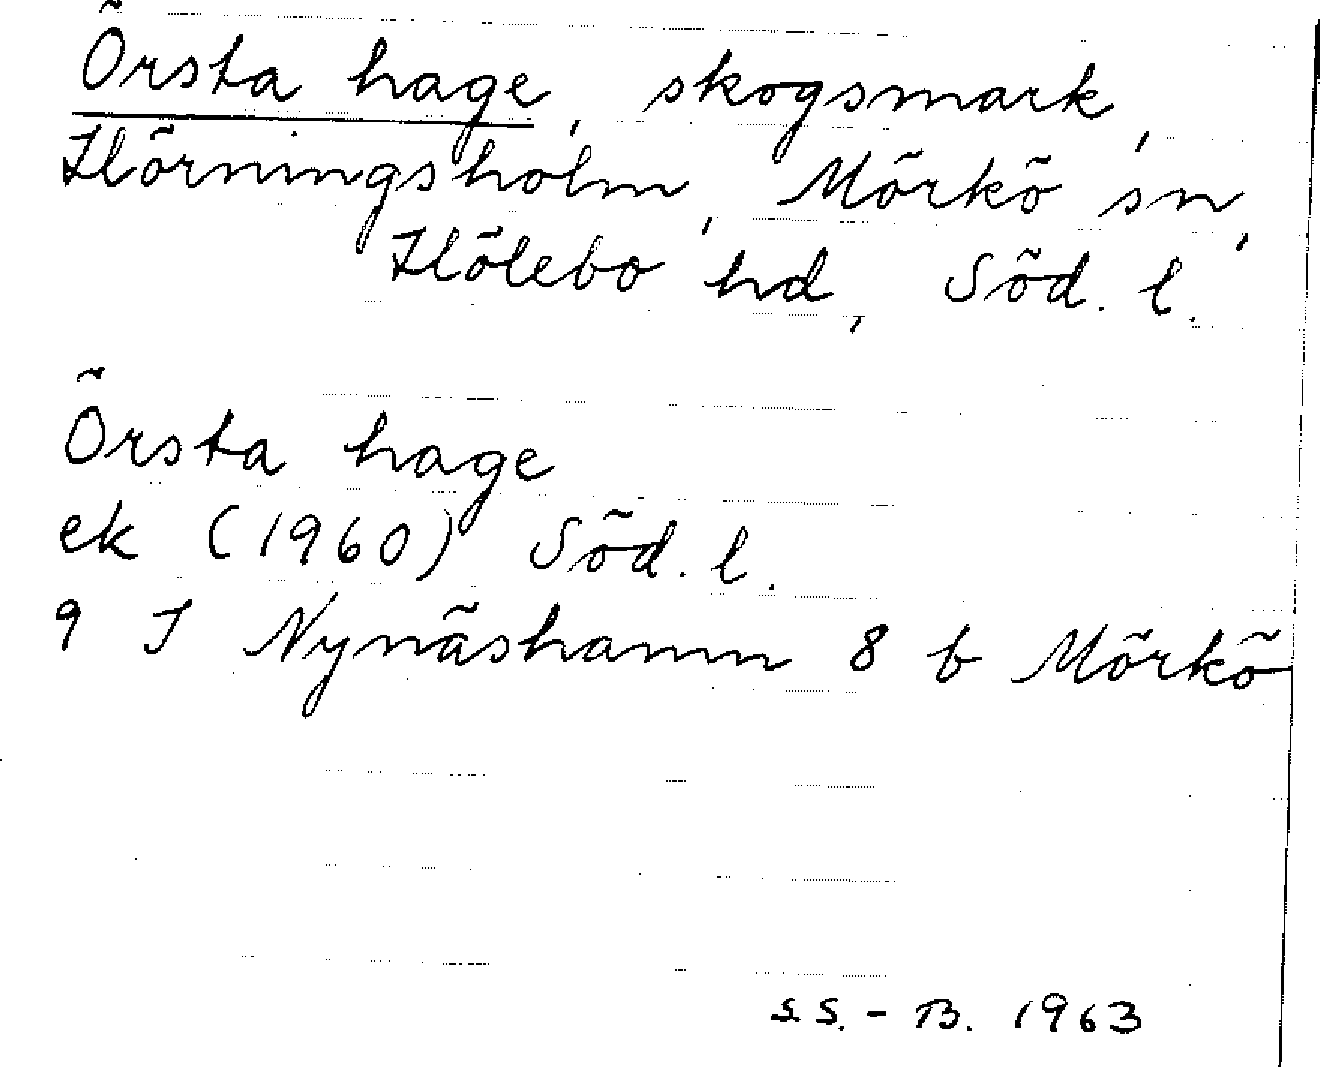 Örsta hage, skogsmark,
Hörningsholm, Mörkö sn,
Hölebo hd, Söd. l.
Örsta hage
ek (1960) Söd. l.
9 I Nynäshamn 8 b Mörkö
S.S.-B. 1963